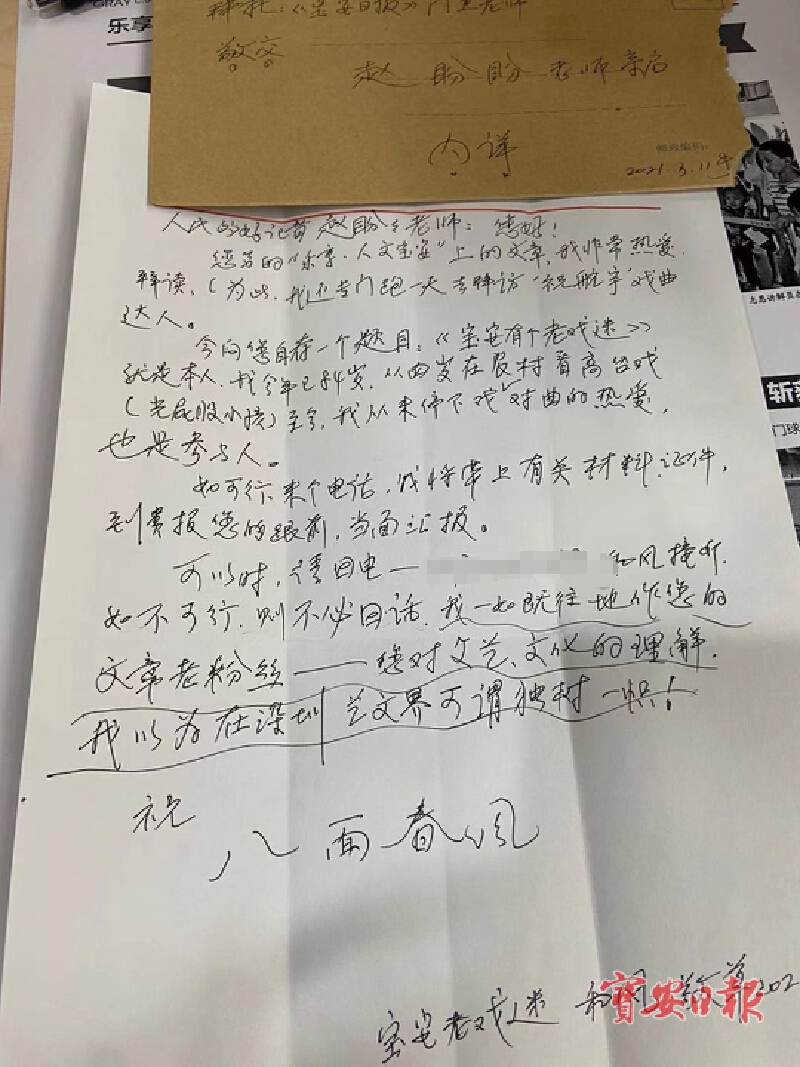 乐享
拜托:《宝安日报》门卫老师
敬交
赵盼盼老师亲启
内详
邮政编码:
2021.3.11
人民的好记者赵盼盼老师:您好!
您写的“乐享·人文宝安”上的文章,我非常热爱
拜读、(为此,我还专门跑一天去拜访“祝航宇”戏曲
达人。
今向您自荐一个题目:《宝安有个老戏迷》
就是本人,我今年已84岁,从四岁在农村看高台戏
(光屁股小孩)至今,我从未停下戏对曲的热爱,
也是参与人。
如可行,来个电话,我将带上有关材料、证件,
到贵报您的跟前,当面汇报。
可以时,请回电—和风接听.
如不可行,则不必回话.我一如既往地作您的
文章老粉丝——您对文艺、文化的理解.
我以为在深圳艺文界可谓独树一帜!
祝
八面春风
宝安老戏迷 和风 敬荐202
寶安日報
志愿讲解员
门球